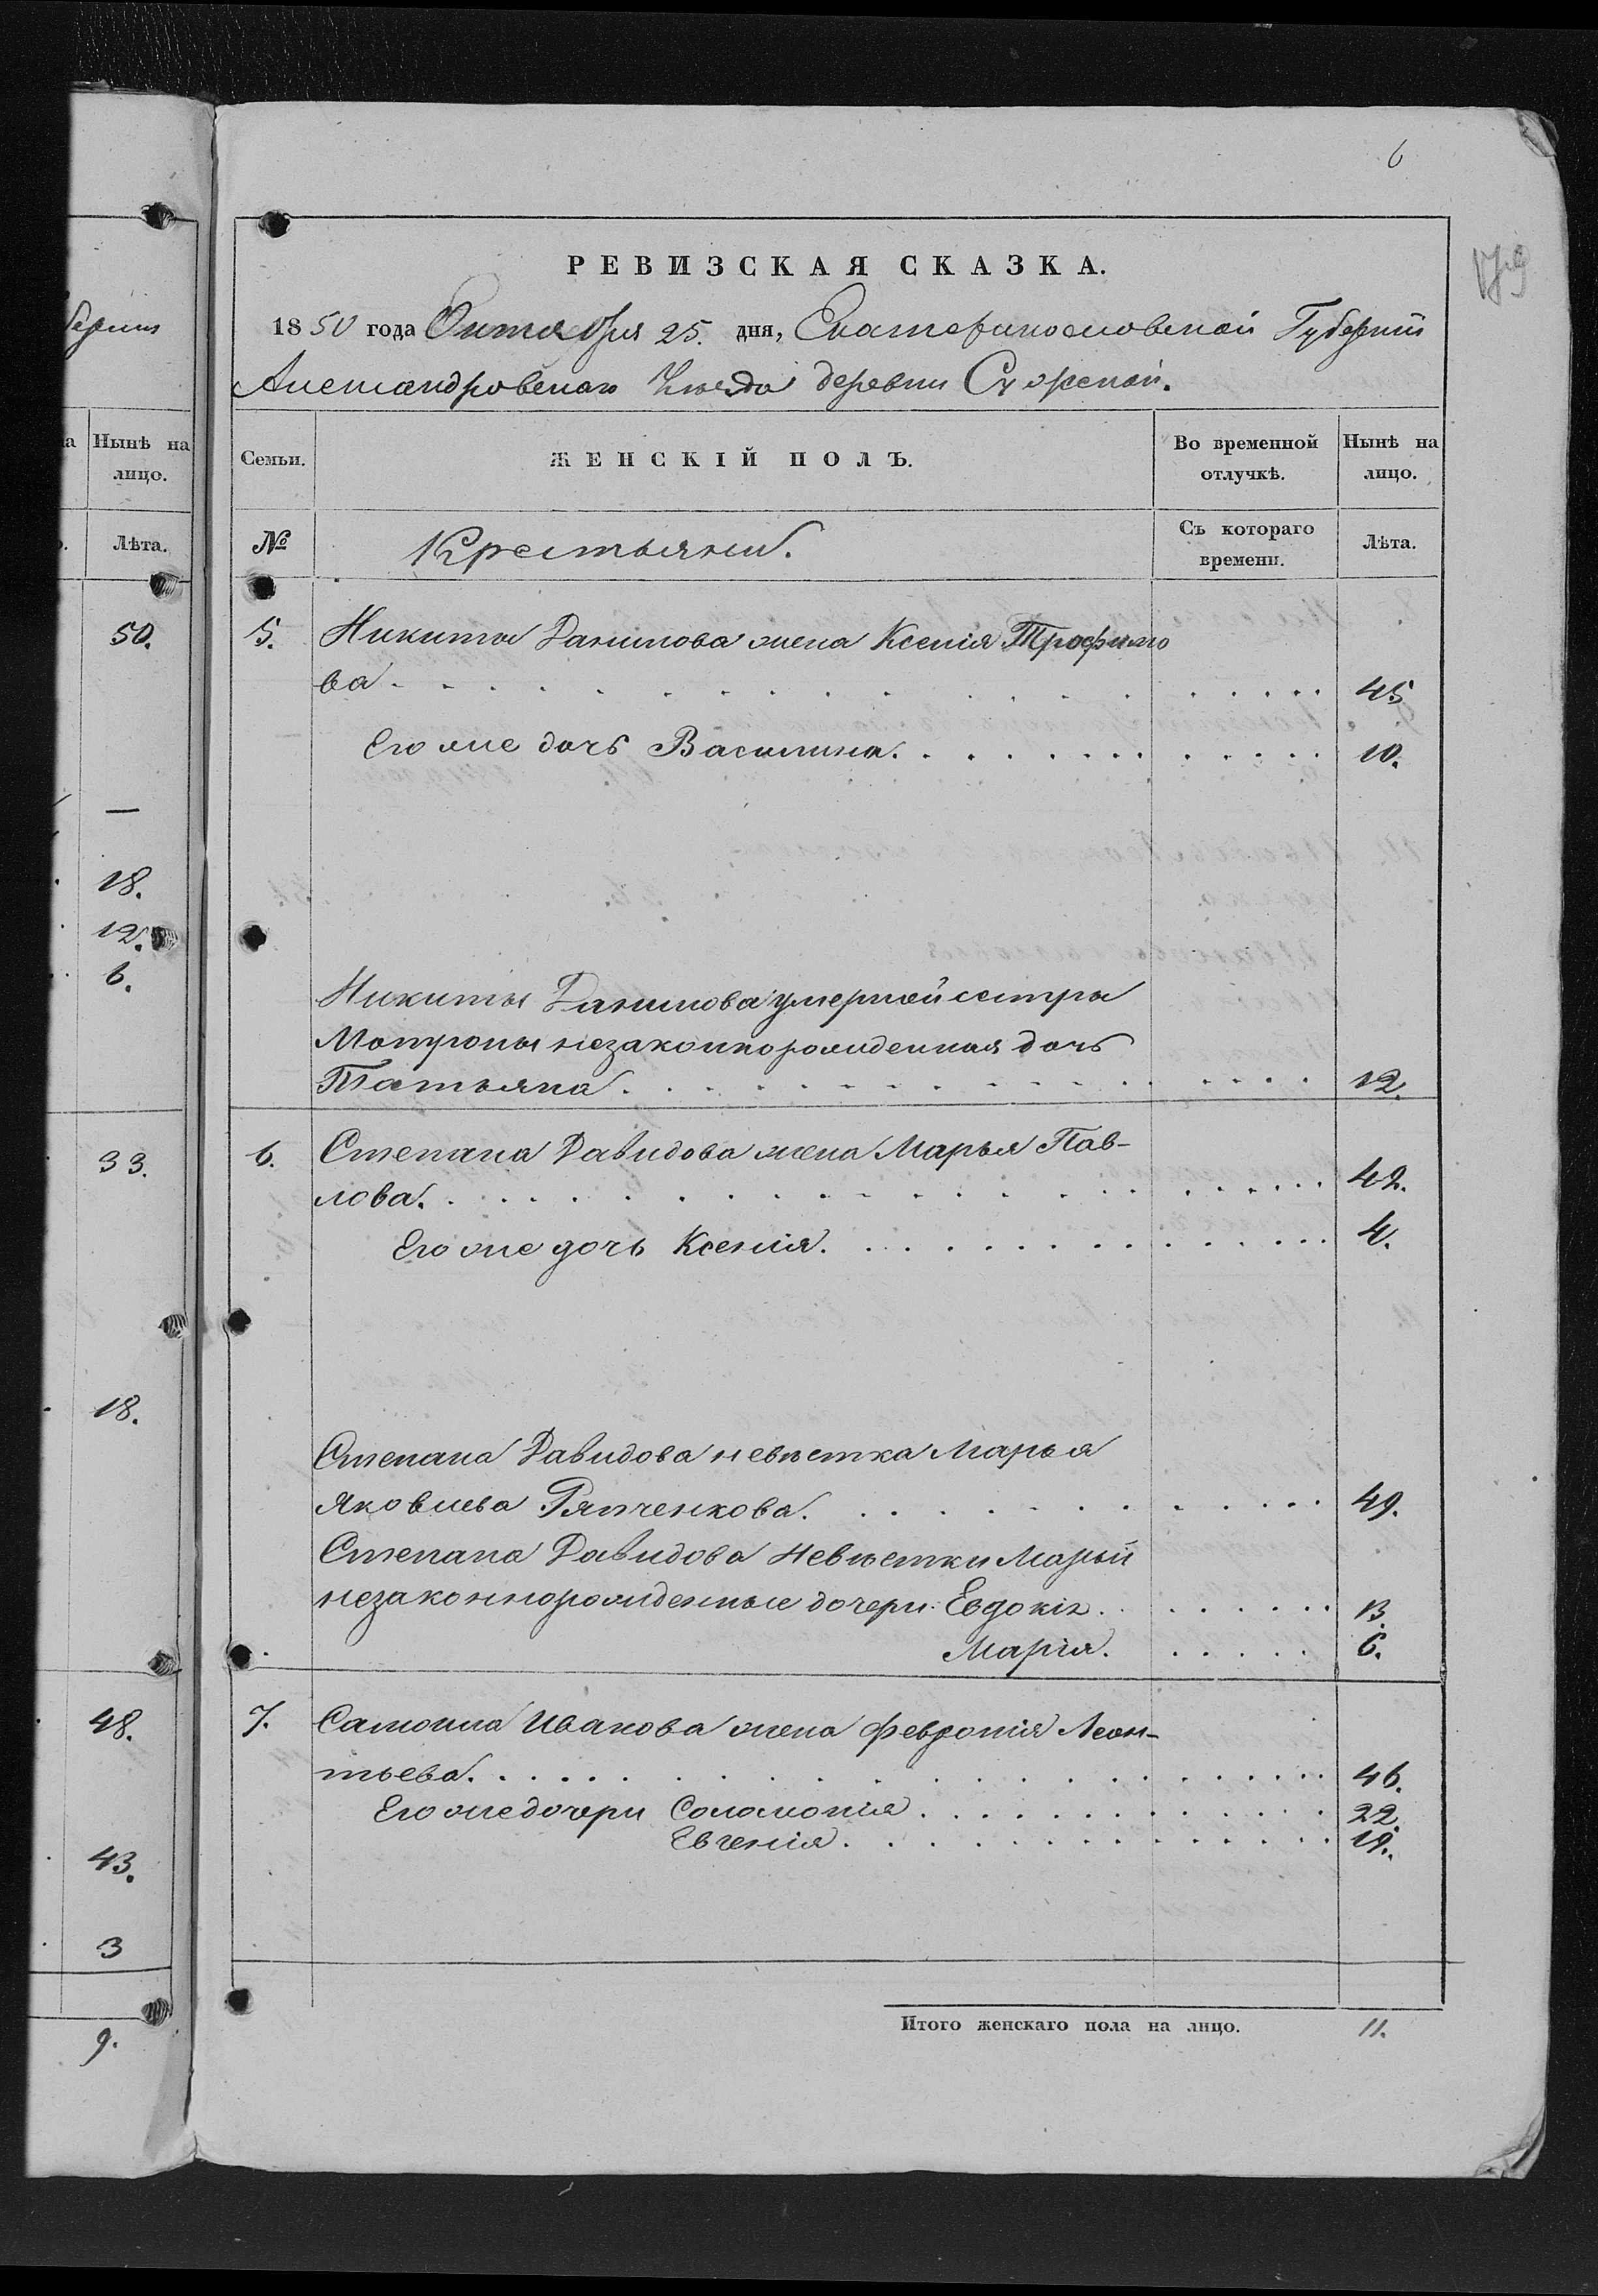 6
РЕВИЗСКАЯ СКАЗКА.
1850 года Октября 25. дня, Екатеринославской Губерніи
Александровскаго Уѣзда деревни
Семьи.
ЖЕНСКІЙ ПОЛЪ.
Во временной отлучкѣ.
Нынѣ на лицо.
№
Крестьяни.
Съ котораго времени.
Лѣта.
5. Никиты Данилова жена Ксенія Трофимо
ва 45
Его же дочь Василина. 10.
Никиты Данилова умершей сестры
Мотроны незаконнорожденная дочь
Татьяна. 12.
6. Степана Давидова жена Марья Пав-
лова. 42.
Его же дочь Ксенія. 4.
Степана Давидова невѣстка Марья
Яковлева 49.
Степана Давидова невѣстки Марьи
незаконнорожденные дочери: Евдокія. 13.
Марія. 6.
7. Самойла Иванова жена Февронія Леон-
тьева. 46.
Его же дочери Соломонія. 22.
Евгенія. 19.
Итого женскаго пола на лицо. 11.
берніи
Нынѣ на
лицо.
Лѣта.
50.
—
18.
12.
6.
33.
18.
48.
43.
3
9.